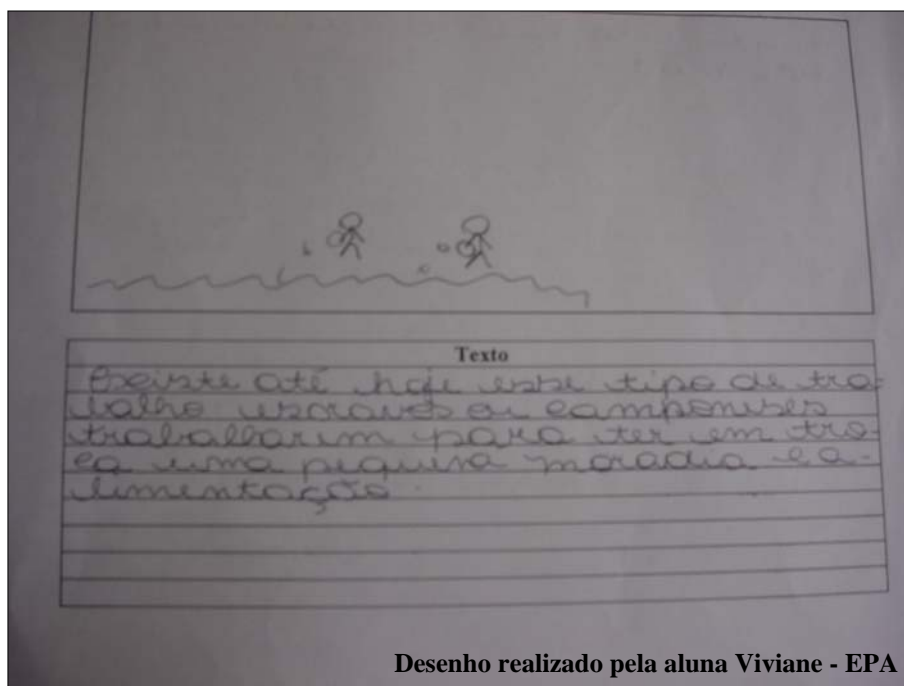 Texto
Existe até hoje esse tipo de tra-
balho escravos ou camponeses
trabalharem para ter em tro-
ca uma pequena moradia e a-
limentação.
Desenho realizado pela aluna Viviane - EPA